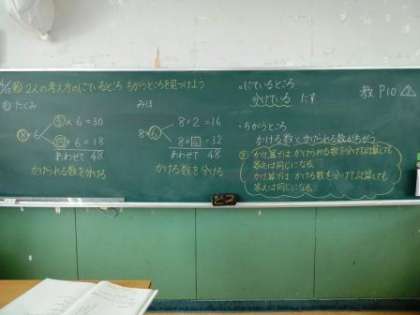 2人の考え方のにているところ ちがうところを見つけよう
たくみ
8×6
5×6=30
3×6=18
あわせて 48
かけられる数を分ける
みほ
8×6
8×2=16
8×4=32
あわせて 48
かける数を分ける
・にているところ
分けている たす
・ちがうところ
かける数とかけられる数がちがう
かけ算では かけられる数を分けて計算しても
答えは同じになる。
かけ算では かける数を分けて計算しても
答えは同じになる。
教 P10